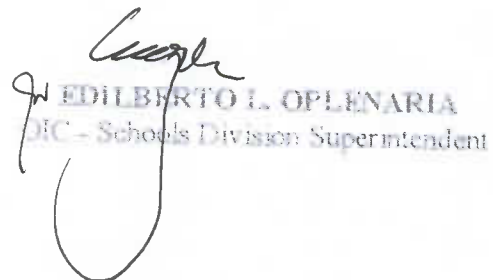 EDILBERTO L. OPLENARIA
OIC – Schools Division Superintendent